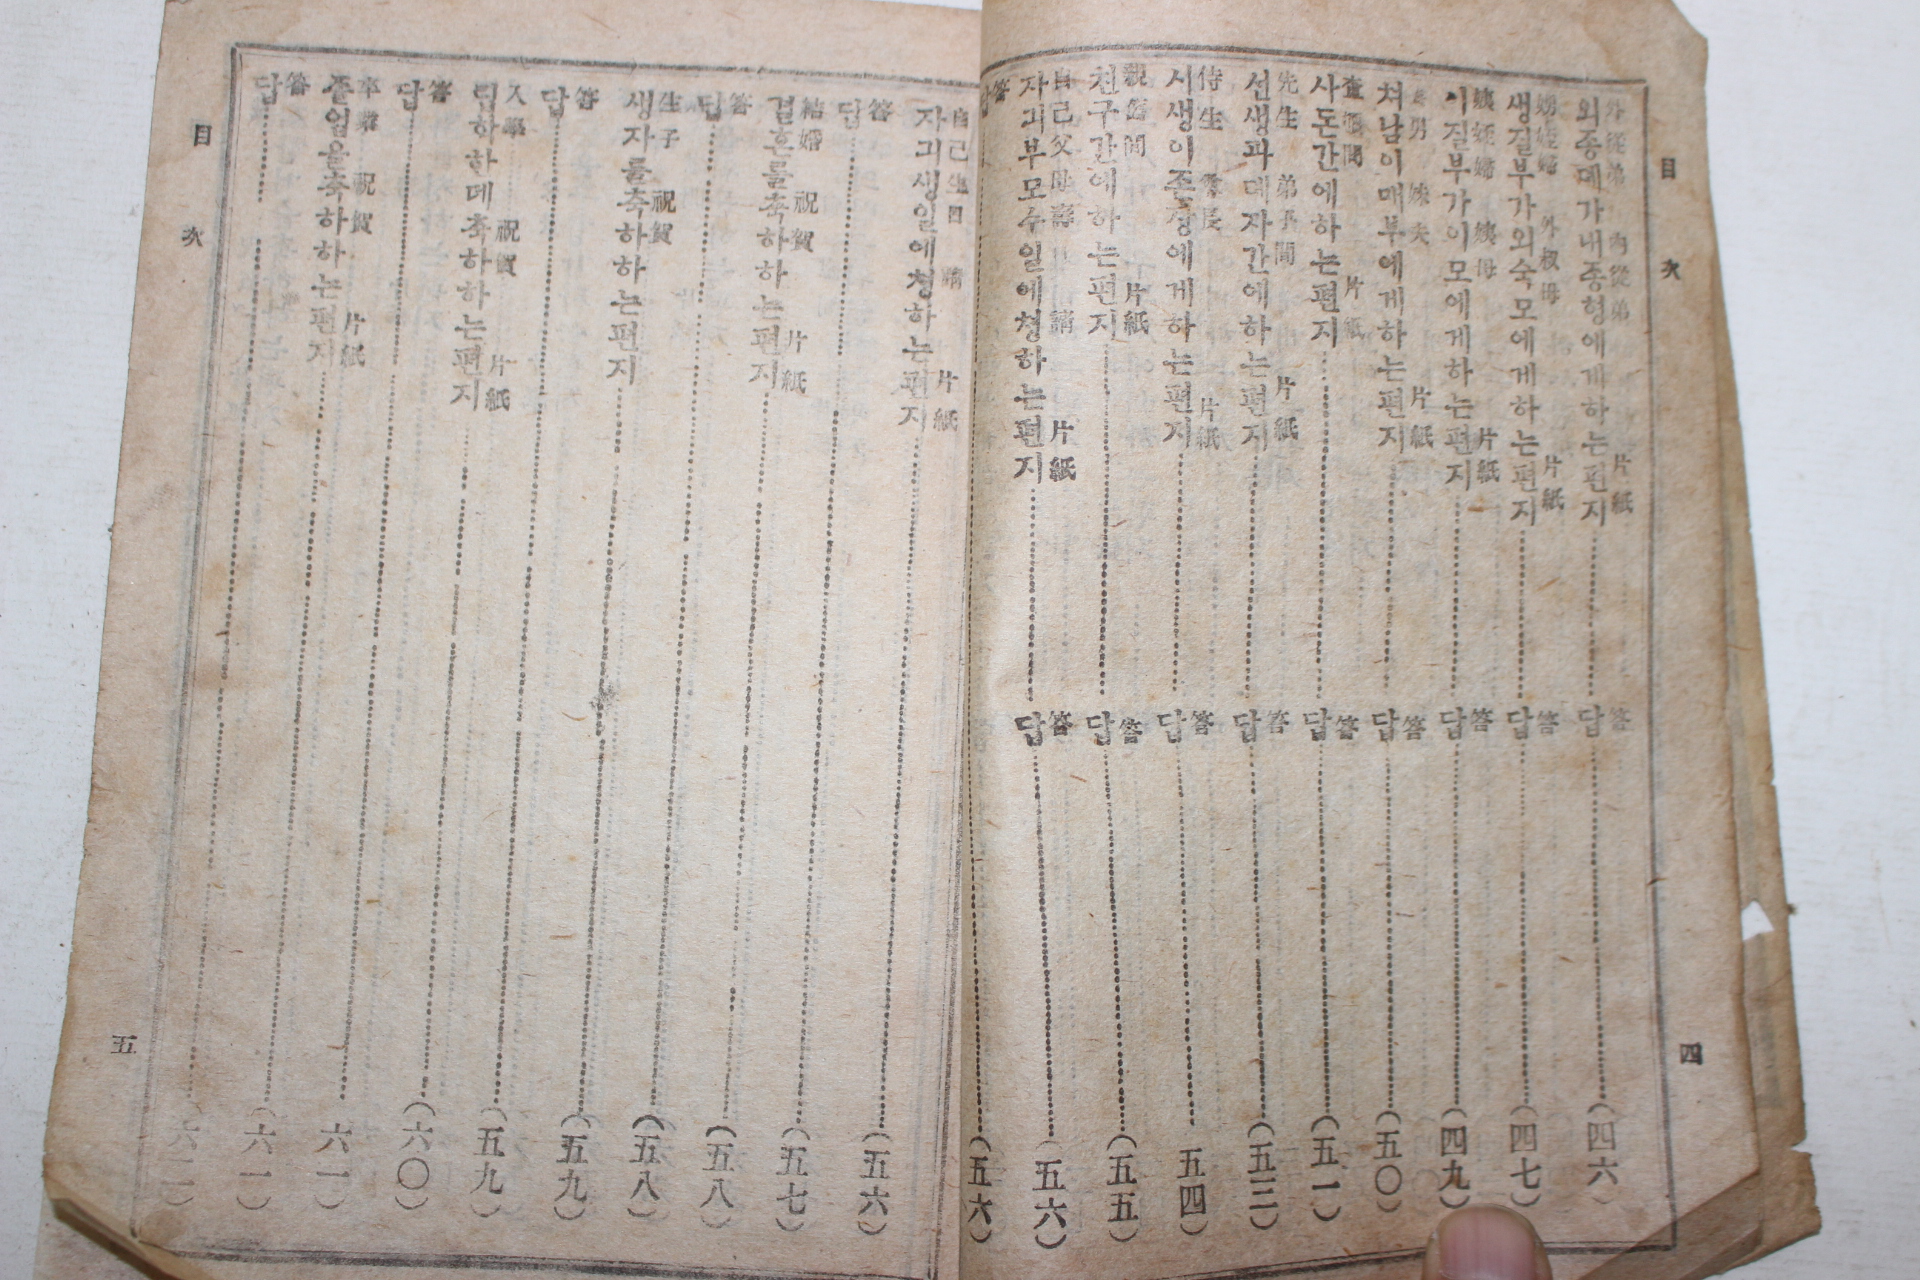 目 次
四
외종뎨가내종형에게하는편지 答답 (四六)
外從弟 內從弟 片紙
생질부가외숙모에게하는편지 答답 (四七)
甥姪婦 外叔母 片紙
이질부가이모에게하는편지 答답 (四九)
姨姪婦 姨母 片紙
처남이매부에게하는편지 答답 (五〇)
男 妹夫 片紙
사돈간에하는편지 答답 (五一)
査頓間 片紙
선생과뎨자간에하는편지 答답 (五三)
先生 弟子間 片紙
시생이존장에게하는편지 答답 五四)
侍生 尊長 片紙
친구간에하는편지 答답 (五五)
親舊間 片紙
자긔부모수일에쳥하는편지 答답 五六)
自己父母壽日 請 片紙
答답 (五六)
자긔생일에쳥하는편지
自己生日 請 片紙
答답 (五六)
결혼를축하하는편지 (五七)
結婚 祝賀 片紙
答답 (五八)
생자를축하하는편지 (五八)
生子 祝賀
答답 (五九)
입하하데축하하는편지 (五九)
入學 祝賀 片紙
答답 (六〇)
졸업을축하하는편지 六一)
卒業 祝賀 片紙
答답 (六一)
目 次
五